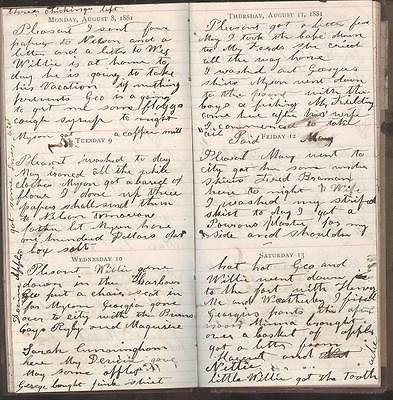 three chickings left
MONDAY, AUGUST 8, 1881
Pleasant I sent four
papers to Nelson and a
and a letter to Wes
Willie is at home to
day he is going to take
his Vacation if nothing
prevents Geo is going
to get me some flaggs
cough syrup to night
Myron got a coffee mill
TUESDAY 9
Pleasant washed to day
May ironed all the white
clothes Myron got a barrel of
flour I done up three
papers shall send them
to Nelson Tomorrow
father let Myron have
one hundred Dollars got
box salt
WEDNESDAY 10
Pleasant Willie gone
down in the Harbour
Geo put a chair seat in
for Myron Georgia gone
over to city with the Bruns
boys Rufy and
Sarah Cunningham
gone
May some apples
George bought pink shirt
THURSDAY, AUGUST 11, 1881
Pleasant got a letter from
May I took the babe down
to My Fords she cried
all the way home
I washed out Georges
shirts Myron went down
to the with the
boys a fishing Mr Fielding
came here after his wife
I commenced to take
oil Paid May
FRIDAY 12
Pleasant May went to
city got her some under
skirts Fred Braman
here to night & Wife
I washed my striped
skirt to day I got a
Porous plaster for my
side and shoulder
SATURDAY 13
hot Geo and
Willie went down
to the fort with Henry
Me and Weatherbey I fixed
Georges pants this after
noon Minna brought
over a basket of apples
got a letter from
and
Nettie
little Willie got the Tooth